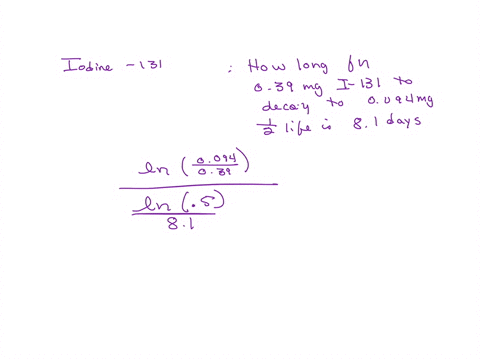 Iodine - 131 : How long for
0.39 mg I-131 to
decay to 0.094 mg
1/2 life is 8.1 days
ln (0.094/0.39)
ln (.5)
8.1